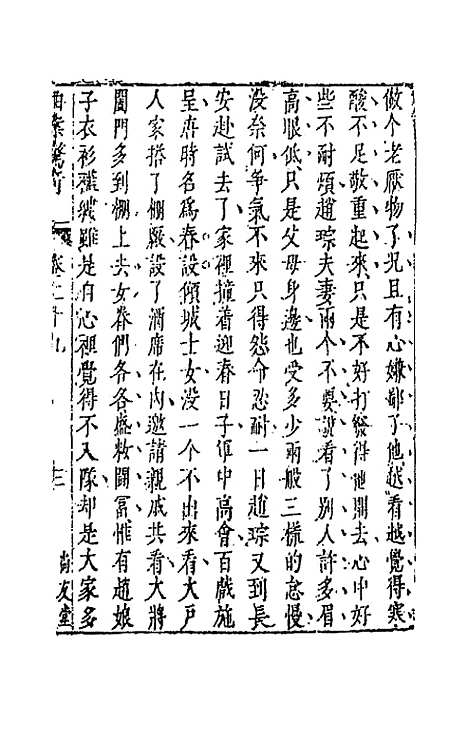 做个老厭物了况且有心嫌鄙了他越看越覺得寒
酸不足敬重起來只是不好打發得他開去心中好
些不耐煩趙琮夫妻兩个不要說看了別人許多眉
高眼低只是父母身邊也受多少兩般三樣的怠慢
没奈何爭氣不來只得怨命忍耐一日趙琮又到長
安赴試去了家裡撞着迎春日子軍中高會百戲施
呈唐時名爲春設傾城士女没一个不出來看大戶
人家搭了棚厰設了酒席在内邀請親戚共看大將
闔門多到棚上去女眷們各各盛粧鬪富惟有趙娘
子衣衫襤褸雖是自心裡覺得不入隊却是大家多
拍案驚奇 卷二十九 十三 尚友堂